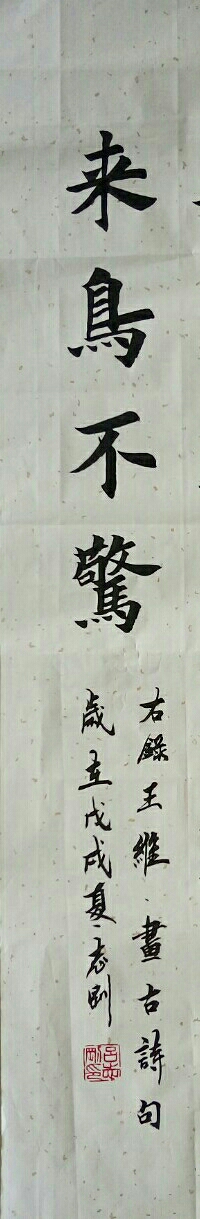 来鳥不驚
右錄王維·畫古詩句
歲在戊戌夏·志剛